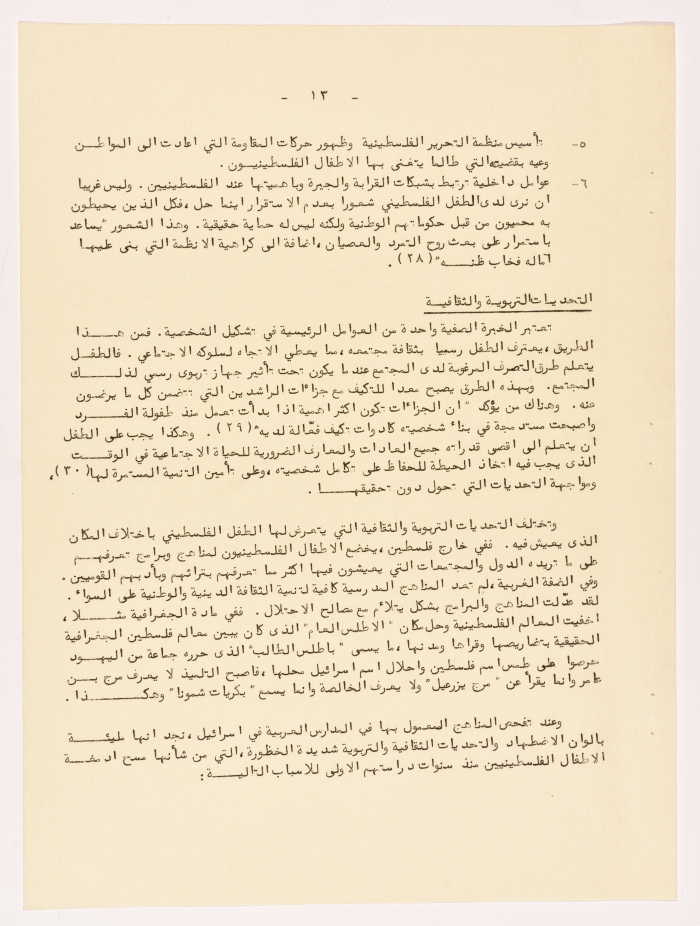 - ١٣ -
٥- تأسيس منظمة التحرير الفلسطينية وظهور حركات المقاومة التي اعادت الى المواطن
وعيه بقضيته التي طالما يتغنى بها الاطفال الفلسطينيون .
٦- عوامل داخلية ترتبط بشبكات القرابة والجيرة وباهميتها عند الفلسطينيين . وليس غريبا
ان نرى لدى الطفل الفلسطيني شعورا بعدم الاستقرار اينما حل ، فكل الذين يحيطون
به محميون من قبل حكوماتهم الوطنية ولكنه ليس له حماية حقيقية . وهذا الشعور "يساعد
باستمرار على بعث روح التمرد والعصيان ، اضافة الى كراهية الانظمة التي بنى عليها
آماله فخاب ظنه" (٢٨) .
التحديات التربوية والثقافية
تعتبر الخبرة الصفية واحدة من العوامل الرئيسية في تشكيل الشخصية . فمن هذا
الطريق ، يعترف الطفل رسميا بثقافة مجتمعه ، مما يعطي الاتجاه لسلوكه الاجتماعي . فالطفل
يتعلم طرق التصرف المرغوبة لدى المجتمع عندما يكون تحت تأثير جهاز تربوى رسمي لذلك
المجتمع . وبهذه الطرق يصبح معدا للتكيف مع جزاءات الراشدين التي تتضمن كل ما يرضون
عنه . وهناك من يؤكد " ان الجزاءات تكون اكثر اهمية اذا بدأت تعمل منذ طفولة الفرد
واصبحت مستدمجة في بناء شخصيته كادوات تكيف فعّالة لديه" (٢٩) . وهكذا يجب على الطفل
ان يتعلم الى اقصى قدراته جميع العادات والمعارف الضرورية للحياة الاجتماعية في الوقت
الذى يجب فيه اتخاذ الحيطة للحفاظ على تكامل شخصيته ، وعلى تأمين التنمية المستمرة لها (٣٠) ،
ومواجهة التحديات التي تحول دون تحقيقها .
وتختلف التحديات التربوية والثقافية التي يتعرض لها الطفل الفلسطيني باختلاف المكان
الذى يعيش فيه . ففي خارج فلسطين ، يخضع الاطفال الفلسطينيون لمناهج وبرامج تعرفهم
على ما تريده الدول والمجتمعات التي يعيشون فيها اكثر مما تعرفهم بتراثهم وبأدبهم القوميين .
وفي الضفة الغربية ، لم تعد المناهج المدرسية كافية لتنمية الثقافة الدينية والوطنية على السواء .
لقد عدّلت المناهج والبرامج بشكل يتلائم مع مصالح الاحتلال . ففي مادة الجغرافية مثلا ،
اخفيت المعالم الفلسطينية وحل مكان " الاطلس العام" الذى كان يبين معالم فلسطين الجغرافية
الحقيقية بتضاريسها وقراها ومدنها ، ما يسمى " باطلس الطالب" الذى حرره جماعة من اليهود
حرصوا على طمس اسم فلسطين واحلال اسم اسرائيل محلها ، فاصبح التلميذ لا يعرف مرج بن
عامر وانما يقرأ عن " مرج يزرعيل" ولا يعرف الخالصة وانما يسمع "بكريات شمونا" وهكذا .
وعند تفحص المناهج المعمول بها في المدارس العربية في اسرائيل ، نجد انها مليئة
بالوان الاضطهاد والتحديات الثقافية والتربوية شديدة الخطورة ، التي من شأنها مسح ادمغة
الاطفال الفلسطينيين منذ سنوات دراستهم الاولى للاسباب التالية :